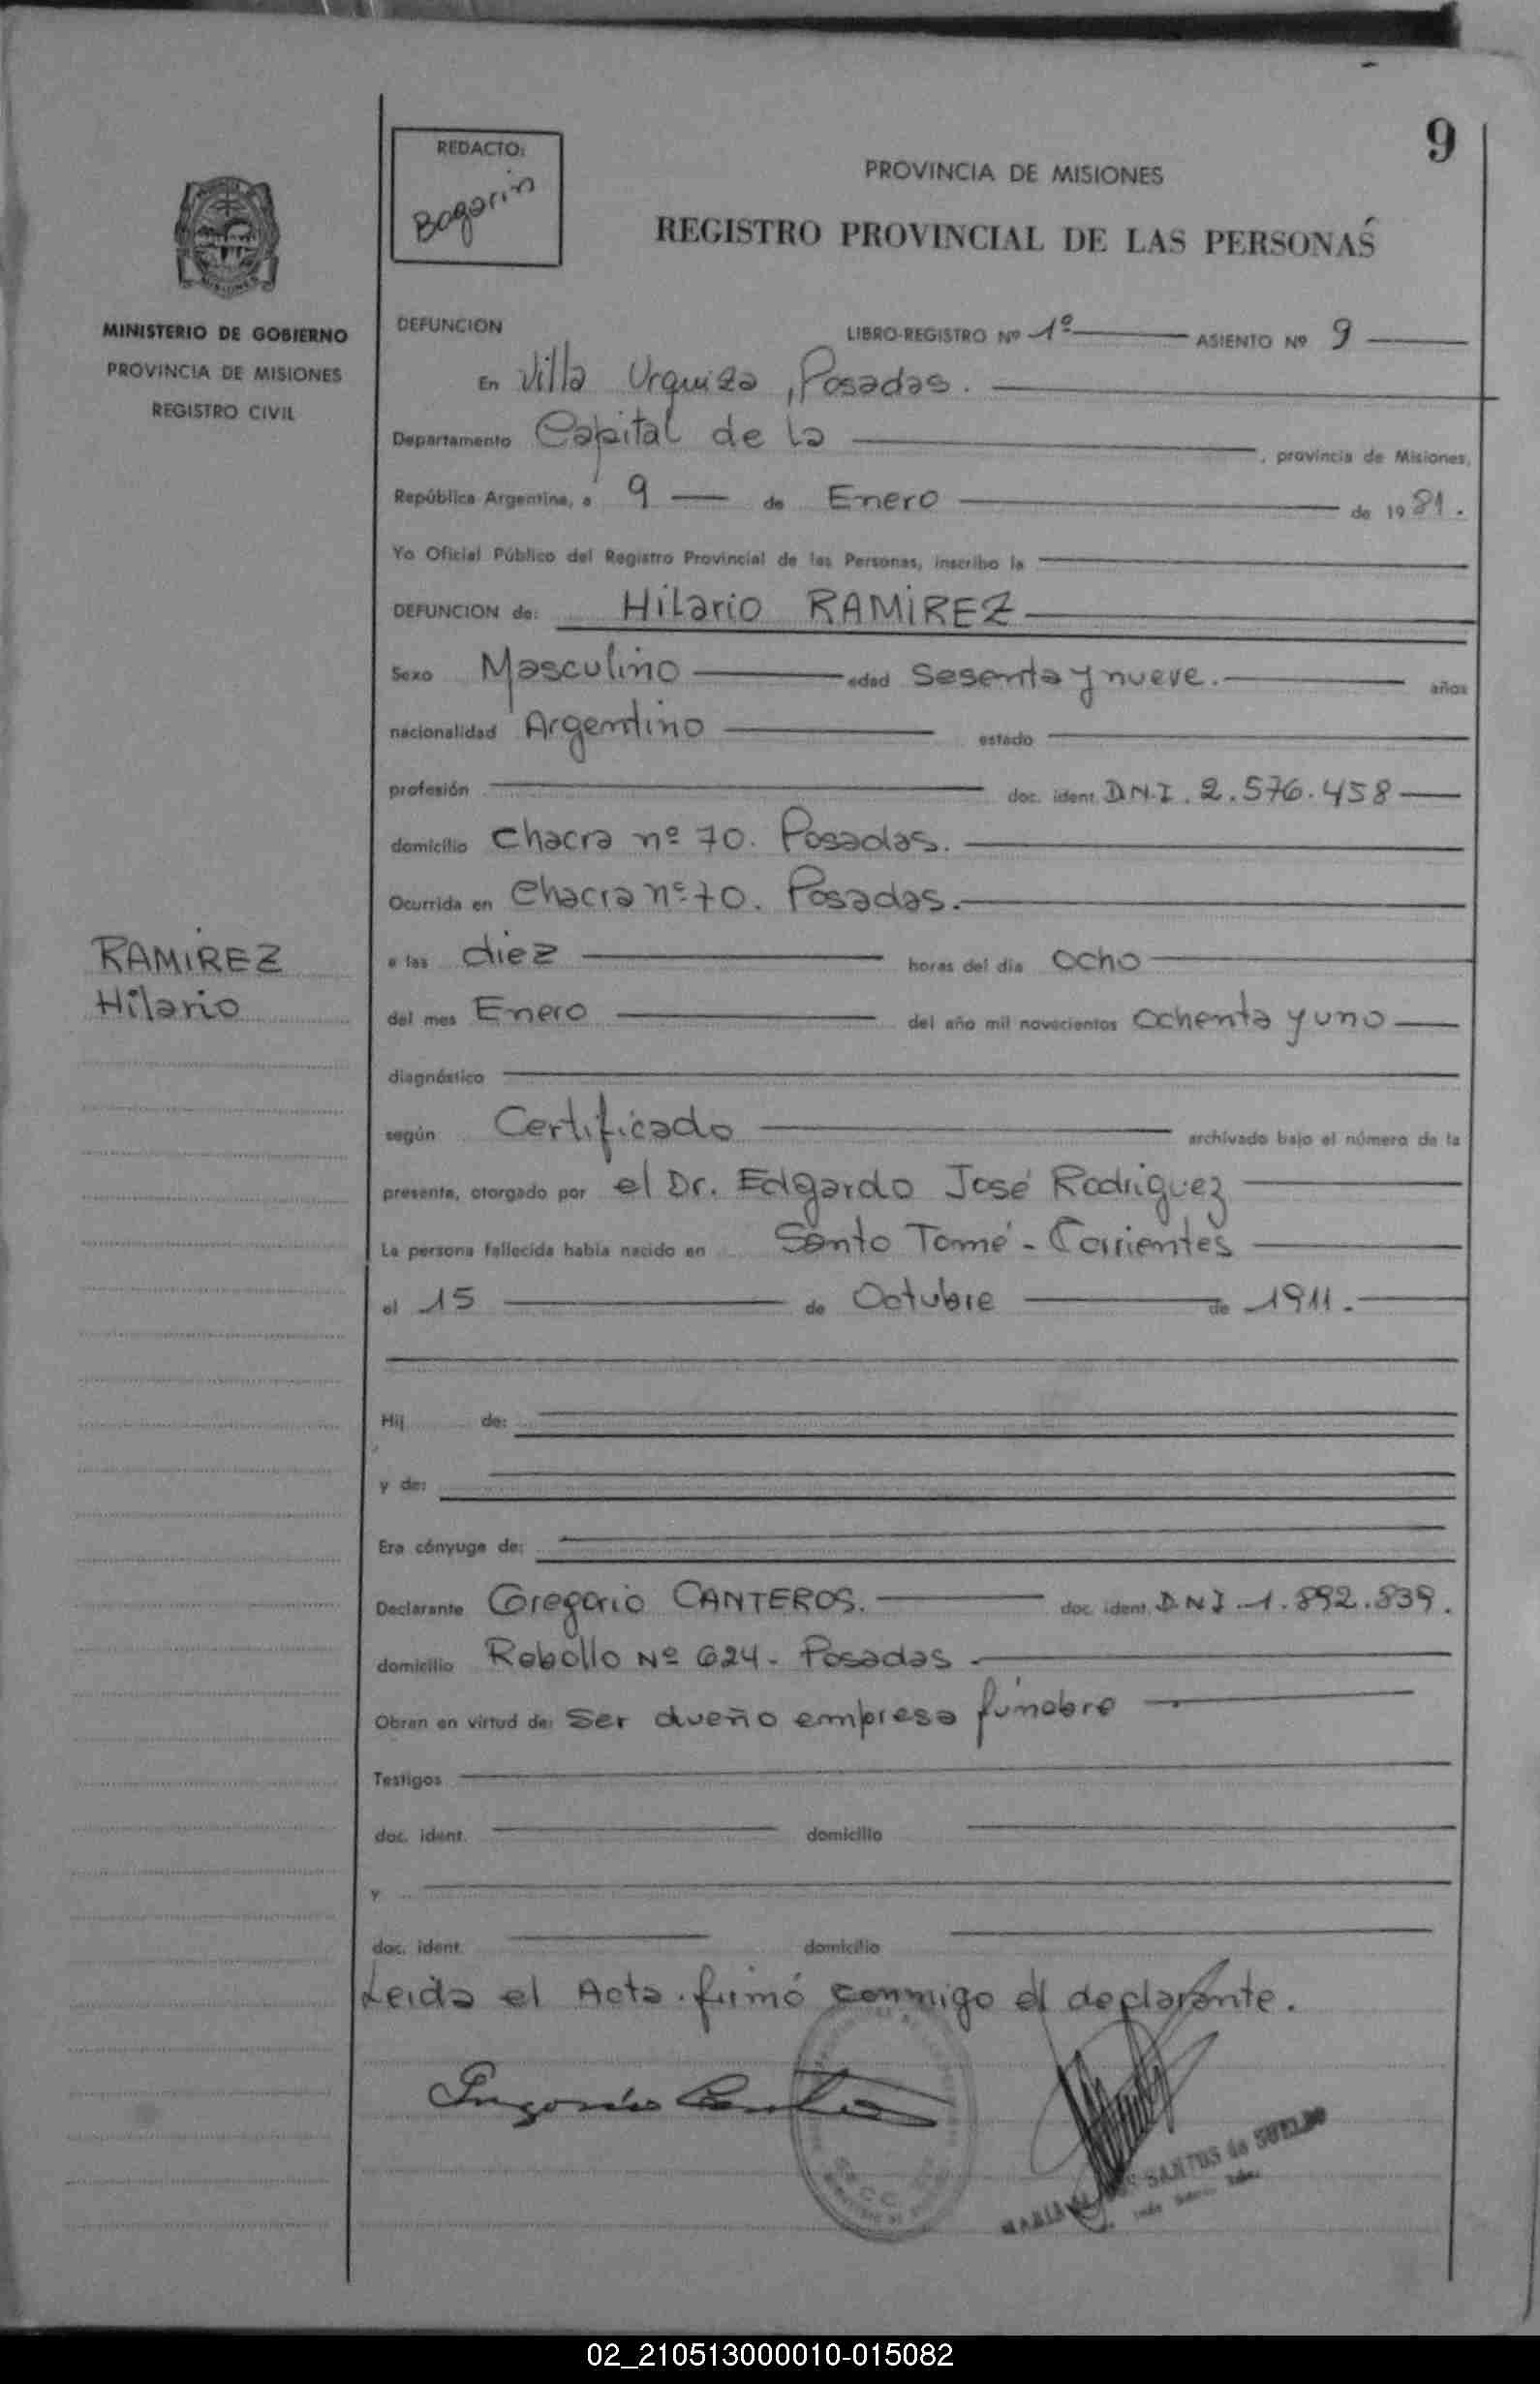 9
REDACTO:
Bogarin
PROVINCIA DE MISIONES
REGISTRO PROVINCIAL DE LAS PERSONAS
MINISTERIO DE GOBIERNO
PROVINCIA DE MISIONES
REGISTRO CIVIL
DEFUNCION
LIBRO-REGISTRO Nº 1º ASIENTO Nº 9
En Villa Urquiza, Posadas.
Departamento Capital de la , provincia de Misiones,
República Argentina, a 9 de Enero de 1981.
Yo Oficial Público del Registro Provincial de las Personas, inscribo la
DEFUNCION de: Hilario RAMIREZ
Sexo Masculino edad Sesenta y nueve. años
nacionalidad Argentino estado
profesión doc. ident. D.N.I. 2.576.458
domicilio Chacra nº 70. Posadas.
Ocurrida en Chacra nº 70. Posadas.
RAMIREZ
Hilario
a las diez horas del día ocho
del mes Enero del año mil novecientos ochenta y uno
diagnóstico
según Certificado archivado bajo el número de la
presente, otorgado por el Dr. Edgardo José Rodriguez
La persona fallecida había nacido en Santo Tomé - Corrientes
el 15 de Octubre de 1911.
Hij de:
y de:
Era cónyuge de:
Declarante Gregorio CANTEROS. doc. ident. D.N.I. 1.892.839.
domicilio Rebollo Nº 624 - Posadas
Obran en virtud de: Ser dueño empresa fúnebre
Testigos
doc. ident. domicilio
y
doc. ident. domicilio
Leida el Acta. firmó conmigo el declarante.
MARIA SANTOS de
02_210513000010-015082